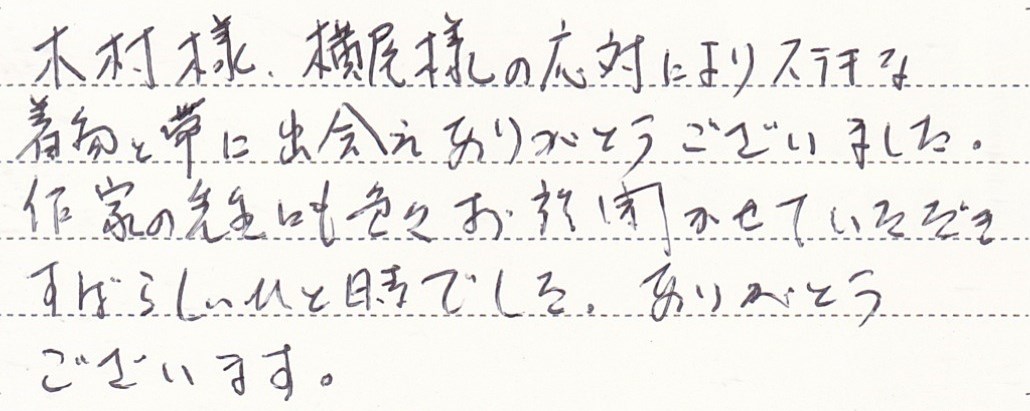 木村様、横尾様の応対によりステキな
着物と帯に出会えありがとうございました。
作家の先生にも色々お話聞かせていただき
すばらしいひと時でした。ありがとう
ございます。